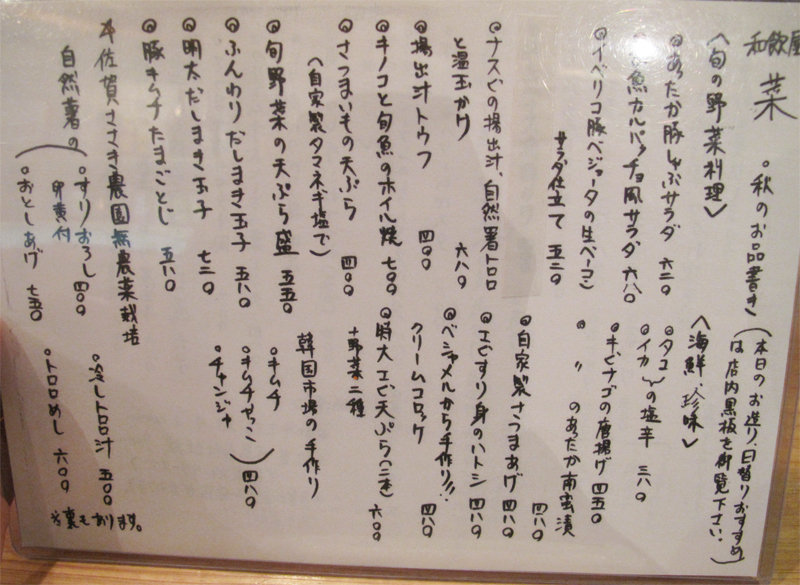 和飲屋
菜
。秋のお品書き
(本日のお造り、日替りおすすめ
は店内黒板を御覧下さい。)
〈旬の野菜料理〉
◎あったか豚しゃぶサラダ 六二〇
魚カルパッチョ風サラダ 六八〇
◎イベリコ豚ベジョータの生ベーコン
サラダ仕立て 五二〇
◎ナスどの揚出汁、自然薯トロロ
と温玉かけ 六八〇
◎揚出汁トウフ 四〇〇
◎キノコと旬魚のホイル焼 七〇〇
◎さつまいもの天ぷら 四〇〇
(自家製タマネギ塩で)
◎旬野菜の天ぷら盛 五五〇
◎ふんわりだしまき玉子 五八〇
◎明太だしまき玉子 七二〇
◎豚キムチたまごとじ 五八〇
〈海鮮、珍味〉
◎タコ
◎イカ の塩辛 三八〇
◎キビナゴの唐揚げ 四五〇
◎ 〃 のあったか南蛮漬
四八〇
◎自家製さつまあげ 四八〇
◎エビすり身のハトシ 四八〇
◎ベシャメルから手作り!!
クリームコロッケ 四八〇
◎特大エビ天ぷら(二本)
+野菜二種 六〇〇
韓国市場の手作り
◦キムチ
◦キムチやっこ
◦チャンジャ 四八〇
佐賀ささき農園無農薬栽培
自然薯の
◦すりおろし 四〇〇
卵黄付
◦おとしあげ 七五〇
◦冷しトロロ汁 五〇〇
◦トロロめし 六〇〇
※裏もあります。